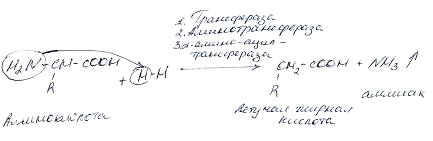 1. Трансфераза
2. Аминотрансфераза
3. α-амино-ацил-
трансфераза
H₂N-CH-COOH + H-H → CH₂-COOH + NH₃ ↑
R R
Аминокислота
Летучая жирная
кислота
аммиак